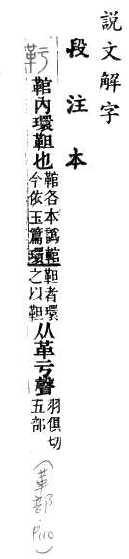 說文解字
段注本
䩪內環靼也䩪各本譌輨今依玉篇環靼者環之以靼从革亏聲羽俱切五部
(革部 P110)